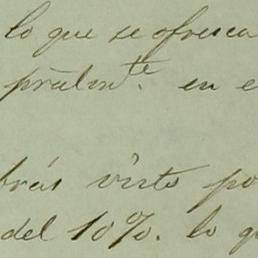 lo que se ofresca
en e
brás visto po
del 10%. lo q